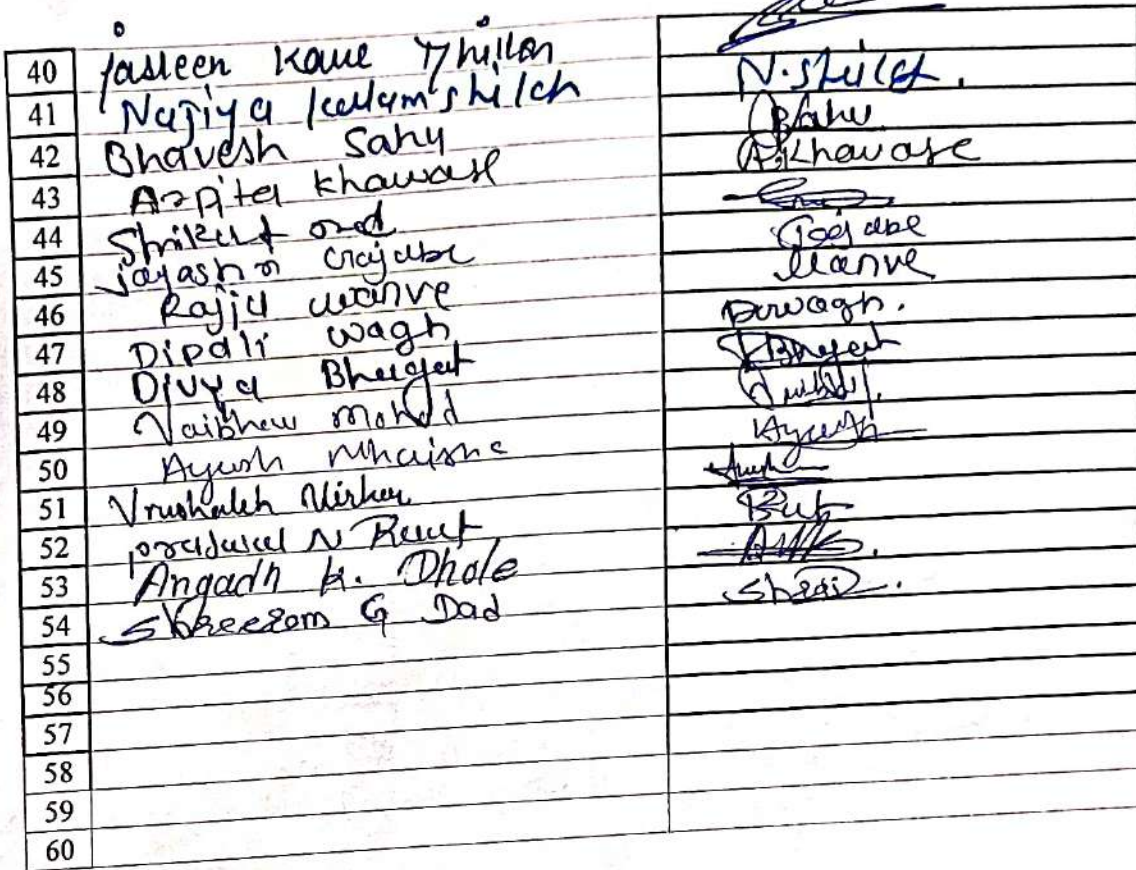 40 Jasleen Kaur Dhillon
41 Najiya kullam shikh N.shikh.
42 Bhavesh Sahu BSahu
43 Arpita Khawase A.Khawase
44 Shrikant
45 Jayashri Gajabe Gajabe
46 Wanve Wanve
47 Dipali Wagh D.Wagh.
48 Divya Bhagat Bhagat
49 Vaibhav
50 Ayush Mhaiske Ayush
51 Vrushabh Virkar
52 N Raut Raut
53 Angadh k. Dhole
54 Shreeram G Dad
55
56
57
58
59
60